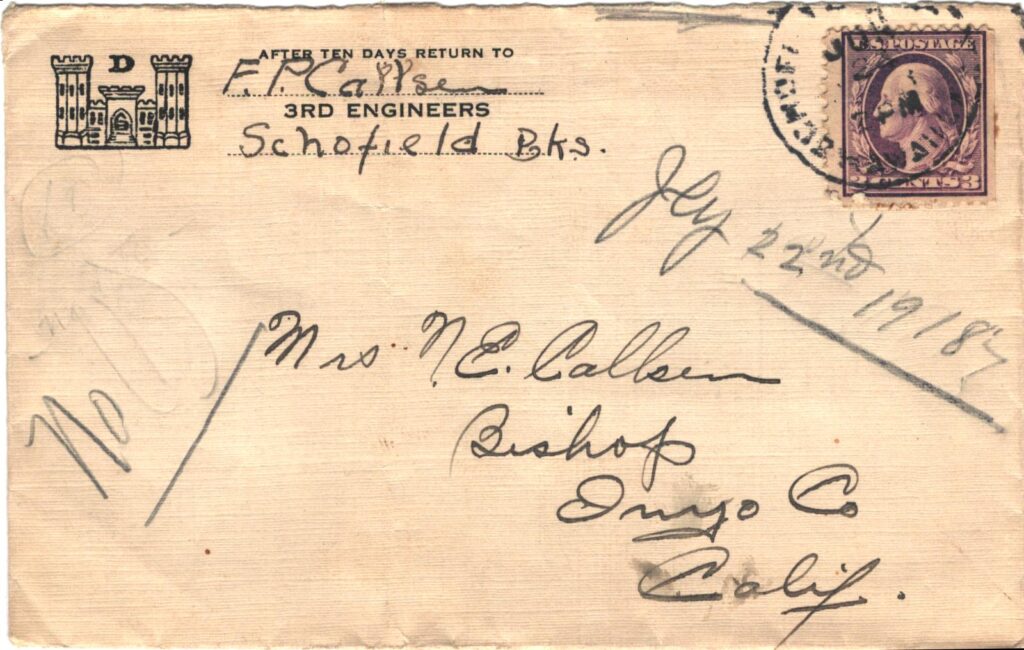 D
AFTER TEN DAYS RETURN TO
F. P. Callsen
3RD ENGINEERS
Schofield Bks.
U.S. POSTAGE
3 CENTS 3
Jly 22nd 1918
No 1
Mrs N. E. Callsen
Bishop
Inyo Co
Calif.